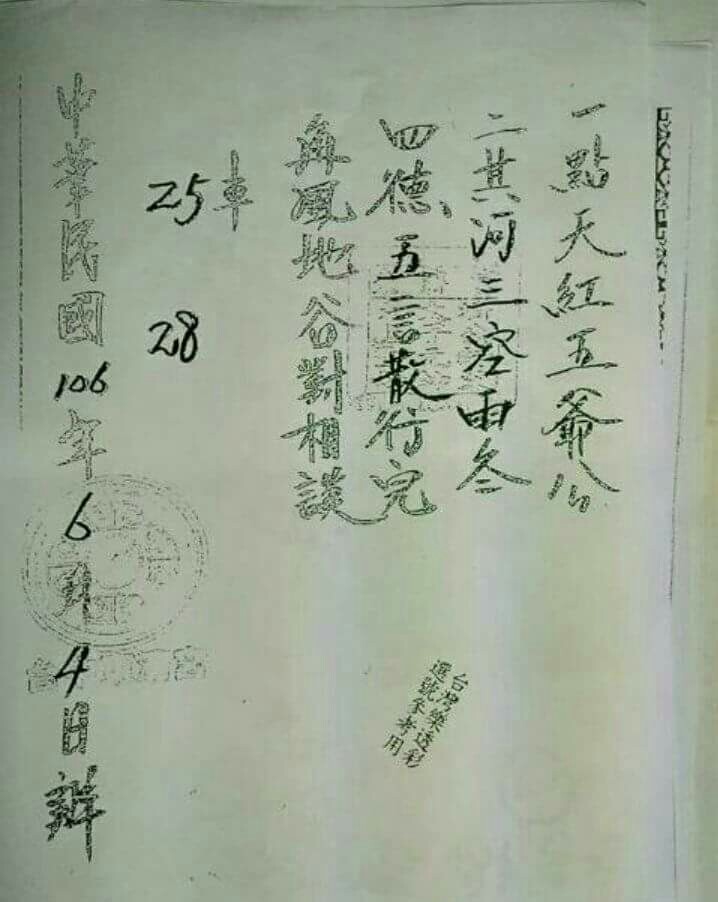 一點天紅五爺公
二其河三空雨冬
四德五言散行完
再風地谷對相談
車
25 28
中華民國106年6月4日辦
台灣樂透彩
選號參考用